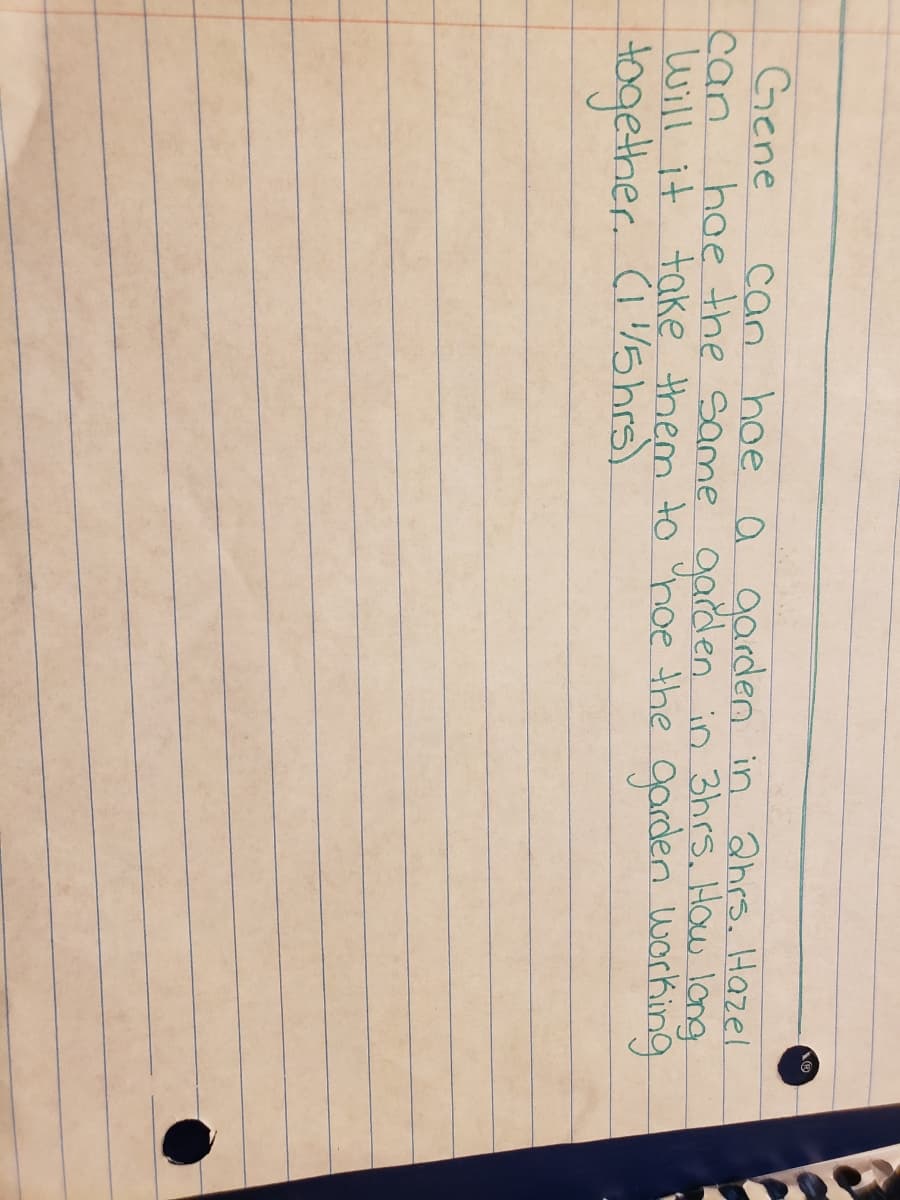 Gene can hoe a garden in 2hrs. Hazel
can hoe the same garden in 3hrs. How long
will it take them to hoe the garden working
together. (1 1/5hrs)